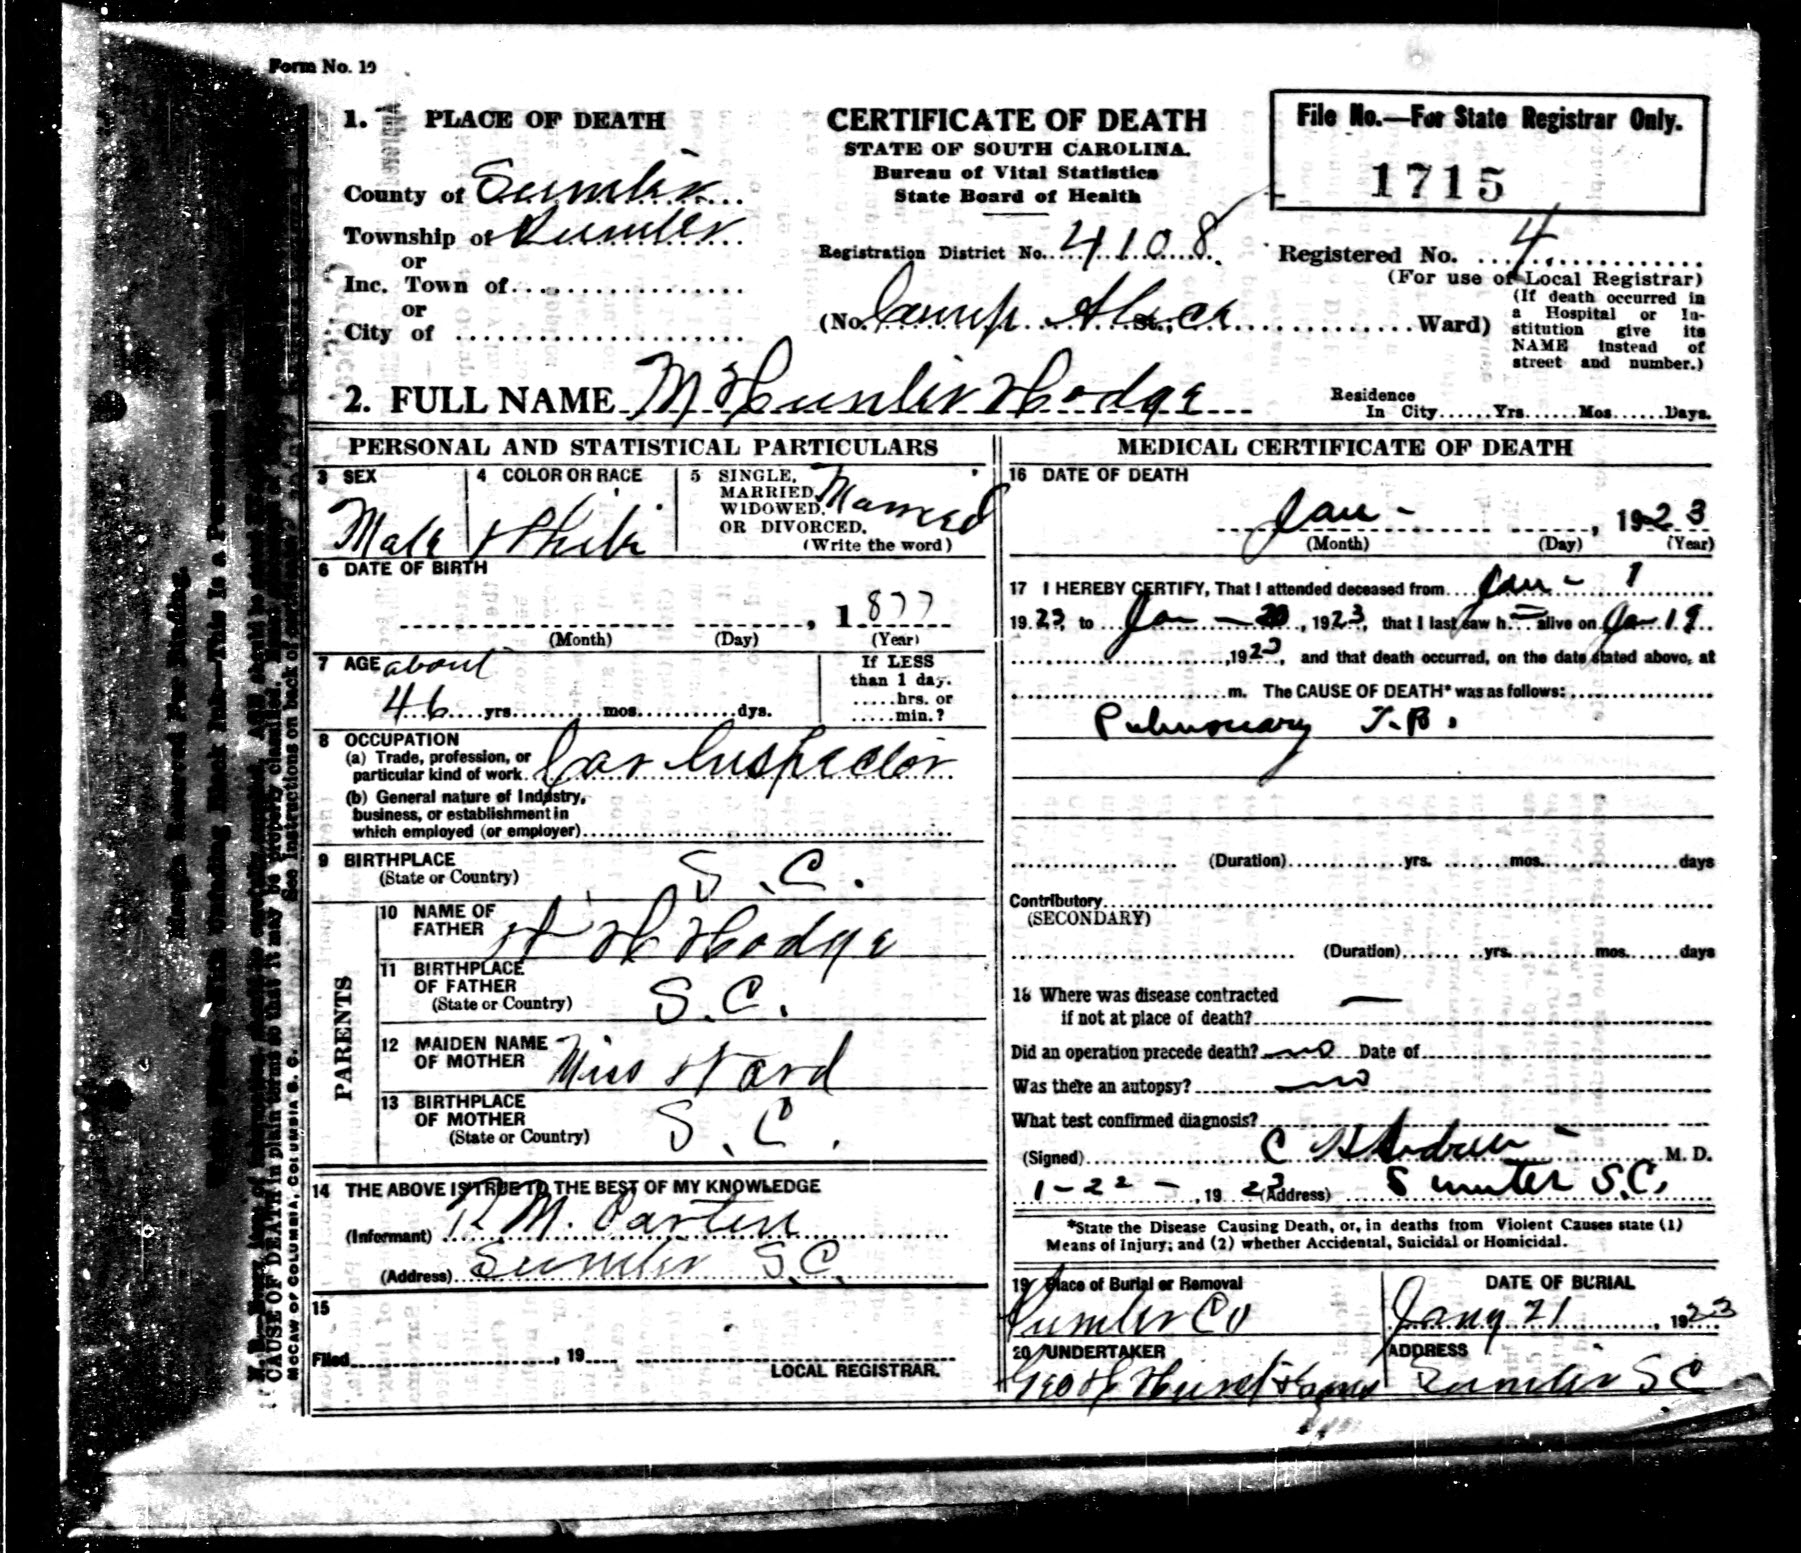 Form No. 19
1. PLACE OF DEATH
County of Sumter
Township of Sumter
or
Inc. Town of
or
City of
CERTIFICATE OF DEATH
STATE OF SOUTH CAROLINA.
Bureau of Vital Statistics
State Board of Health
Registration District No. 4108
(No. Camp St., Ward)
File No.—For State Registrar Only.
1715
Registered No. 4
(For use of Local Registrar)
(If death occurred in
a Hospital or In-
stitution give its
NAME instead of
street and number.)
2. FULL NAME M Hunter Hodge
Residence
In City Yrs Mos Days.
PERSONAL AND STATISTICAL PARTICULARS
3 SEX
Male
4 COLOR OR RACE
White
5 SINGLE,
MARRIED,
WIDOWED,
OR DIVORCED.
(Write the word)
Married
6 DATE OF BIRTH
, 1877
(Month) (Day) (Year)
7 AGE about
46 yrs mos dys.
If LESS
than 1 day.
hrs. or
min.?
8 OCCUPATION
(a) Trade, profession, or
particular kind of work Car Inspector
(b) General nature of Industry,
business, or establishment in
which employed (or employer)
9 BIRTHPLACE
(State or Country)
S.C.
PARENTS
10 NAME OF
FATHER
H Hodge
11 BIRTHPLACE
OF FATHER
(State or Country)
S.C.
12 MAIDEN NAME
OF MOTHER
Miss Ward
13 BIRTHPLACE
OF MOTHER
(State or Country)
S.C.
14 THE ABOVE IS TRUE TO THE BEST OF MY KNOWLEDGE
(Informant) R M.
(Address) Sumter S.C.
15
Filed , 19
LOCAL REGISTRAR.
MEDICAL CERTIFICATE OF DEATH
16 DATE OF DEATH
Jan - , 1923
(Month) (Day) (Year)
17 I HEREBY CERTIFY, That I attended deceased from Jan - 1
1923, to Jan - 20, 1923, that I last saw h alive on Jan 19
, 1923, and that death occurred, on the date stated above, at
m. The CAUSE OF DEATH* was as follows:
Pulmonary T.B.
(Duration) yrs. mos. days
Contributory
(SECONDARY)
(Duration) yrs. mos. days
18 Where was disease contracted
if not at place of death? —
Did an operation precede death? no Date of
Was there an autopsy? no
What test confirmed diagnosis?
(Signed) C H Andrews M. D.
1-22-, 1923 (Address) Sumter S.C.
*State the Disease Causing Death, or, in deaths from Violent Causes state (1)
Means of Injury; and (2) whether Accidental, Suicidal or Homicidal.
19 Place of Burial or Removal
Sumter Co
DATE OF BURIAL
Jany 21, 1923
20 UNDERTAKER
Geo H Hurst
ADDRESS
Sumter S C
Margin Reserved For Binding.
CAUSE OF DEATH in plain terms so that it may be properly classified.
See instructions on back of
McCAW OF COLUMBIA, COLUMBIA S. C.